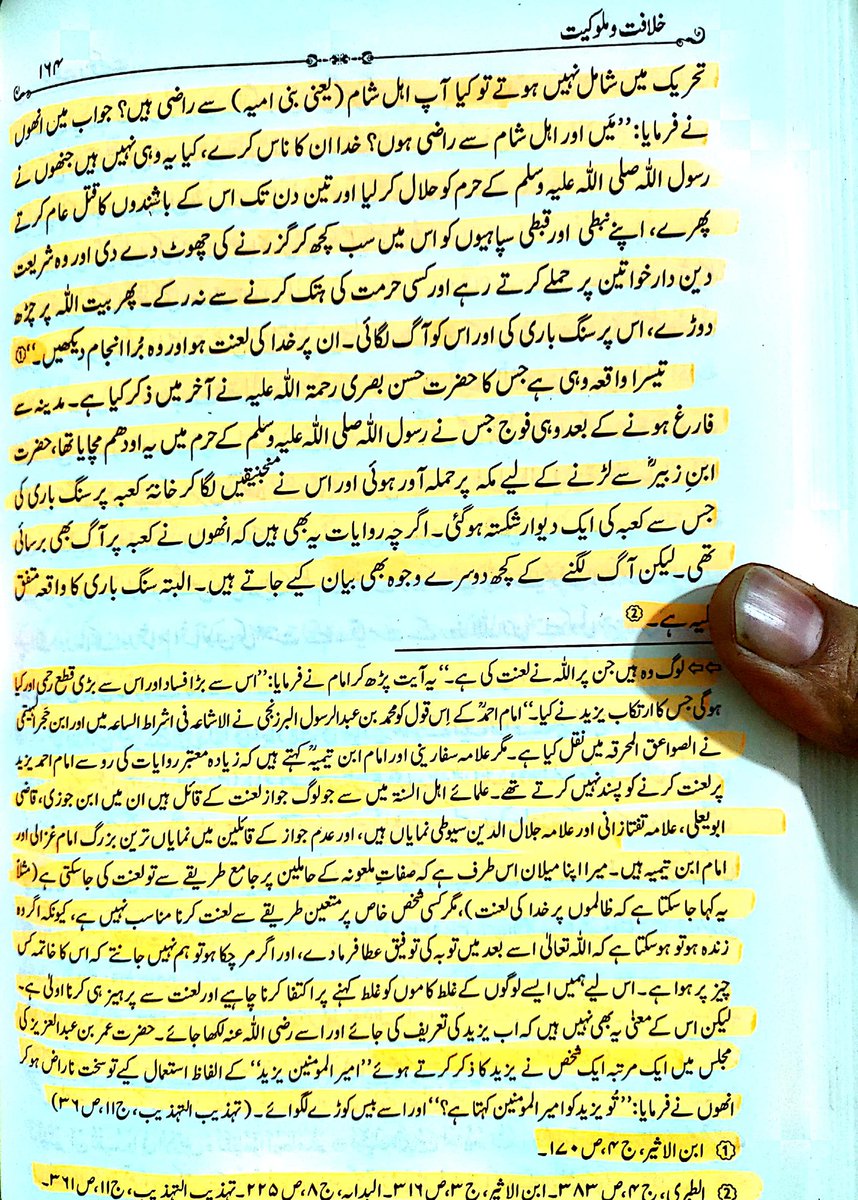 خلافت و ملوکیت
۱۶۴
تحریک میں شامل نہیں ہوتے تو کیا آپ اہل شام (یعنی بنی امیہ) سے راضی ہیں؟ جواب میں انھوں
نے فرمایا: ’’مَیں اور اہل شام سے راضی ہوں؟ خدا ان کا ناس کرے، کیا یہ وہی نہیں ہیں جنھوں نے
رسول اللہ صلی اللہ علیہ وسلم کے حرم کو حلال کر لیا اور تین دن تک اس کے باشندوں کا قتل عام کرتے
پھرے، اپنے نبطی اور قبطی سپاہیوں کو اس میں سب کچھ کر گزرنے کی چھوٹ دے دی اور وہ شریعت
دین دار خواتین پر حملے کرتے رہے اور کسی حرمت کی ہتک کرنے سے نہ رکے۔ پھر بیت اللہ پر چڑھ
دوڑے، اس پر سنگ باری کی اور اس کو آگ لگائی۔ ان پر خدا کی لعنت ہو اور وہ بُرا انجام دیکھیں۔‘‘①
تیسرا واقعہ وہی ہے جس کا حضرت حسن بصری رحمۃ اللہ علیہ نے آخر میں ذکر کیا ہے۔ مدینہ سے
فارغ ہونے کے بعد وہی فوج جس نے رسول اللہ صلی اللہ علیہ وسلم کے حرم میں یہ اودھم مچایا تھا، حضرت
ابنِ زبیرؓ سے لڑنے کے لیے مکہ پر حملہ آور ہوئی اور اس نے منجنیقیں لگا کر خانۂ کعبہ پر سنگ باری کی
جس سے کعبہ کی ایک دیوار شکستہ ہو گئی۔ اگرچہ روایات یہ بھی ہیں کہ انھوں نے کعبہ پر آگ بھی برسائی
تھی۔ لیکن آگ لگنے کے کچھ دوسرے وجوہ بھی بیان کیے جاتے ہیں۔ البتہ سنگ باری کا واقعہ متفق
ہے۔②
⇦⇦ لوگ وہ ہیں جن پر اللہ نے لعنت کی ہے۔‘‘ یہ آیت پڑھ کر امام نے فرمایا: ’’اس سے بڑا فساد اور اس سے بڑی قطع رحمی اور کیا
ہوگی جس کا ارتکاب یزید نے کیا۔‘‘ امام احمدؒ کے اِس قول کو محمد بن عبدالرسول البرزنجی نے الاشاعہ فی اشراط الساعہ میں اور ابن حجر الہیتمی
نے الصواعق المحرقہ میں نقل کیا ہے۔ مگر علامہ سفارینی اور امام ابن تیمیہؒ کہتے ہیں کہ زیادہ معتبر روایات کی رو سے امام احمد یزید
پر لعنت کرنے کو پسند نہیں کرتے تھے۔ علمائے اہل السنۃ میں سے جو لوگ جواز لعنت کے قائل ہیں ان میں ابن جوزی، قاضی
ابو یعلی، علامہ تفتازانی اور علامہ جلال الدین سیوطی نمایاں ہیں، اور عدم جواز کے قائلین میں نمایاں ترین بزرگ امام غزالی اور
امام ابن تیمیہ ہیں۔ میرا اپنا میلان اس طرف ہے کہ صفاتِ ملعونہ کے حاملین پر جامع طریقے سے تو لعنت کی جا سکتی ہے (مثلاً
یہ کہا جا سکتا ہے کہ ظالموں پر خدا کی لعنت)، مگر کسی شخص خاص پر متعین طریقے سے لعنت کرنا مناسب نہیں ہے، کیونکہ اگر وہ
زندہ ہو تو ہو سکتا ہے کہ اللہ تعالیٰ اسے بعد میں توبہ کی توفیق عطا فرما دے، اور اگر مر چکا ہو تو ہم نہیں جانتے کہ اس کا خاتمہ کس
چیز پر ہوا ہے۔ اس لیے ہمیں ایسے لوگوں کے غلط کاموں کو غلط کہنے پر اکتفا کرنا چاہیے اور لعنت سے پرہیز ہی کرنا اولیٰ ہے۔
لیکن اس کے معنی یہ بھی نہیں ہیں کہ اب یزید کی تعریف کی جائے اور اسے رضی اللہ عنہ لکھا جائے۔ حضرت عمر بن عبدالعزیز کی
مجلس میں ایک مرتبہ ایک شخص نے یزید کا ذکر کرتے ہوئے ’’امیر المومنین یزید‘‘ کے الفاظ استعمال کیے تو سخت ناراض ہو کر
انھوں نے فرمایا: ’’تُو یزید کو امیر المومنین کہتا ہے؟‘‘ اور اسے بیس کوڑے لگوائے۔ (تہذیب التہذیب، ج۱۱، ص ۳۶۱)
① ابن الاثیر، ج ۴، ص ۱۷۰۔
② الطبری، ج ۴، ص ۳۸۳۔ ابن الاثیر، ج ۳، ص ۳۱۶۔ البدایہ، ج ۸، ص ۲۲۵۔ تہذیب التہذیب، ج ۱۱، ص ۳۶۱۔